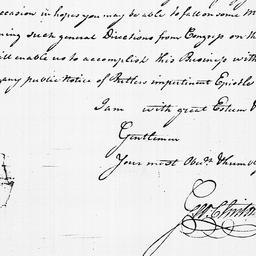 occasion in hopes you may be able to fall on some M
ning such general Directions from Congress on th
ill enable us to accomplish this Business with
any public Notice of Butlers impertinent Epistle
I am with great Esteem &
Gentlemen
Your most Obed.t & humbl
Geo: Clinton